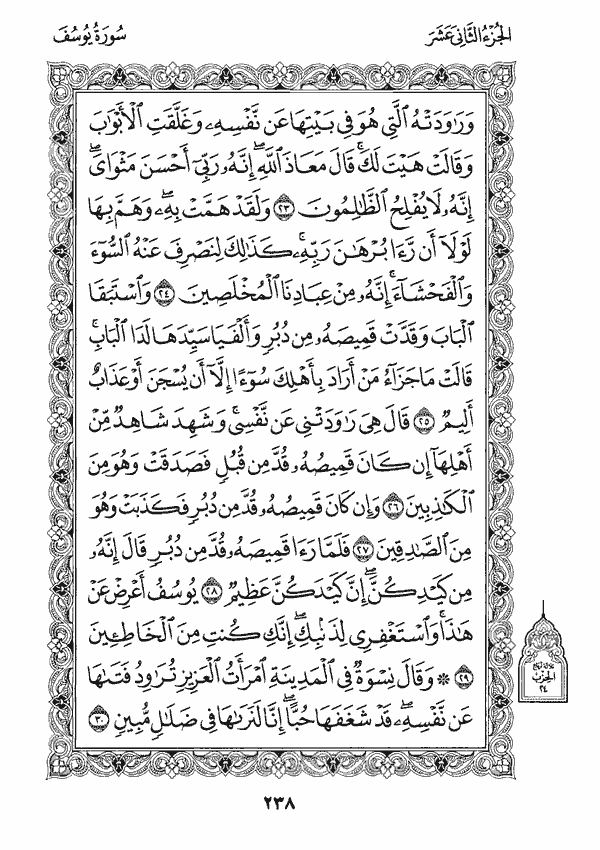 الجُزْءُ الثَّانِى عَشَرَ
سُورَةُ يُوسُفَ
وَرَٰوَدَتْهُ ٱلَّتِى هُوَ فِى بَيْتِهَا عَن نَّفْسِهِۦ وَغَلَّقَتِ ٱلْأَبْوَٰبَ
وَقَالَتْ هَيْتَ لَكَ ۚ قَالَ مَعَاذَ ٱللَّهِ ۖ إِنَّهُۥ رَبِّىٓ أَحْسَنَ مَثْوَاىَ ۖ
إِنَّهُۥ لَا يُفْلِحُ ٱلظَّٰلِمُونَ ٢٣ وَلَقَدْ هَمَّتْ بِهِۦ ۖ وَهَمَّ بِهَا
لَوْلَآ أَن رَّءَا بُرْهَٰنَ رَبِّهِۦ ۚ كَذَٰلِكَ لِنَصْرِفَ عَنْهُ ٱلسُّوٓءَ
وَٱلْفَحْشَآءَ ۚ إِنَّهُۥ مِنْ عِبَادِنَا ٱلْمُخْلَصِينَ ٢٤ وَٱسْتَبَقَا
ٱلْبَابَ وَقَدَّتْ قَمِيصَهُۥ مِن دُبُرٍ وَأَلْفَيَا سَيِّدَهَا لَدَا ٱلْبَابِ ۚ
قَالَتْ مَا جَزَآءُ مَنْ أَرَادَ بِأَهْلِكَ سُوٓءًا إِلَّآ أَن يُسْجَنَ أَوْ عَذَابٌ
أَلِيمٌ ٢٥ قَالَ هِىَ رَٰوَدَتْنِى عَن نَّفْسِى ۚ وَشَهِدَ شَاهِدٌ مِّنْ
أَهْلِهَآ إِن كَانَ قَمِيصُهُۥ قُدَّ مِن قُبُلٍ فَصَدَقَتْ وَهُوَ مِنَ
ٱلْكَٰذِبِينَ ٢٦ وَإِن كَانَ قَمِيصُهُۥ قُدَّ مِن دُبُرٍ فَكَذَبَتْ وَهُوَ
مِنَ ٱلصَّٰدِقِينَ ٢٧ فَلَمَّا رَءَا قَمِيصَهُۥ قُدَّ مِن دُبُرٍ قَالَ إِنَّهُۥ
مِن كَيْدِكُنَّ ۖ إِنَّ كَيْدَكُنَّ عَظِيمٌ ٢٨ يُوسُفُ أَعْرِضْ عَنْ
هَٰذَا ۚ وَٱسْتَغْفِرِى لِذَنۢبِكِ ۖ إِنَّكِ كُنتِ مِنَ ٱلْخَاطِـِٔينَ
٢٩ ۞ وَقَالَ نِسْوَةٌ فِى ٱلْمَدِينَةِ ٱمْرَأَتُ ٱلْعَزِيزِ تُرَٰوِدُ فَتَىٰهَا
عَن نَّفْسِهِۦ ۖ قَدْ شَغَفَهَا حُبًّا ۖ إِنَّا لَنَرَىٰهَا فِى ضَلَٰلٍ مُّبِينٍ ٣٠
الحزب
٢٤
٢٣٨